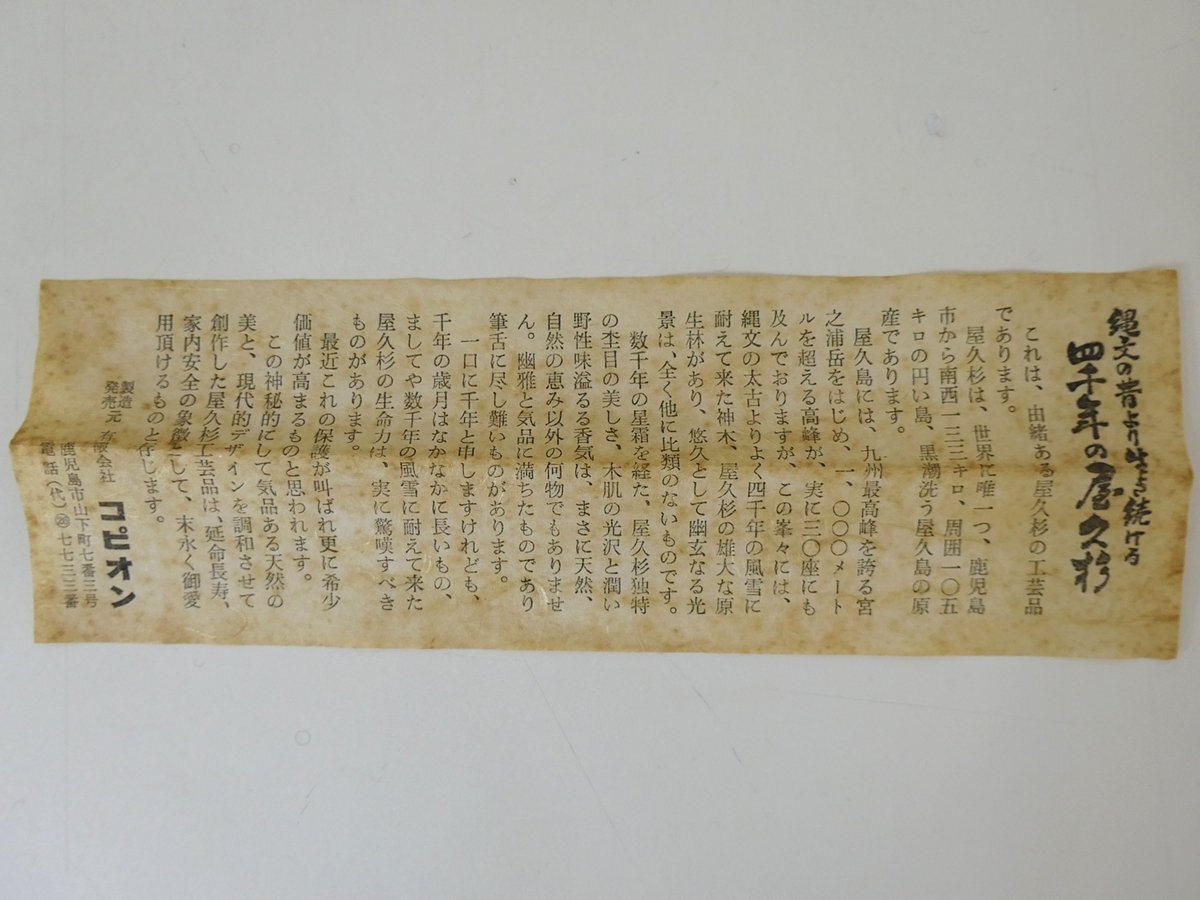 縄文の昔より生き続ける
四千年の屋久杉
これは、由緒ある屋久杉の工芸品
であります。
屋久杉は、世界に唯一つ、鹿児島
市から南西一三三キロ、周囲一〇五
キロの円い島、黒潮洗う屋久島の原
産であります。
屋久島には、九州最高峰を誇る宮
之浦岳をはじめ、一、〇〇〇メート
ルを超える高峰が、実に三〇座にも
及んでおりますが、この峯々には、
縄文の太古よりよく四千年の風雪に
耐えて来た神木、屋久杉の雄大な原
生林があり、悠久として幽玄なる光
景は、全く他に比類のないものです。
数千年の星霜を経た、屋久杉独特
の杢目の美しさ、木肌の光沢と潤い
野性味溢るる香気は、まさに天然、
自然の恵み以外の何物でもありませ
ん。幽雅と気品に満ちたものであり
筆舌に尽し難いものがあります。
一口に千年と申しますけれども、
千年の歳月はなかなかに長いもの、
ましてや数千年の風雪に耐えて来た
屋久杉の生命力は、実に驚嘆すべき
ものがあります。
最近これの保護が叫ばれ更に希少
価値が高まるものと思われます。
この神秘的にして気品ある天然の
美と、現代的デザインを調和させて
創作した屋久杉工芸品は、延命長寿、
家内安全の象徴として、末永く御愛
用頂けるものと存じます。
製造
発売元
有限会社 コピオン
鹿児島市山下町七番三号
電話(代)㉖七七三三番